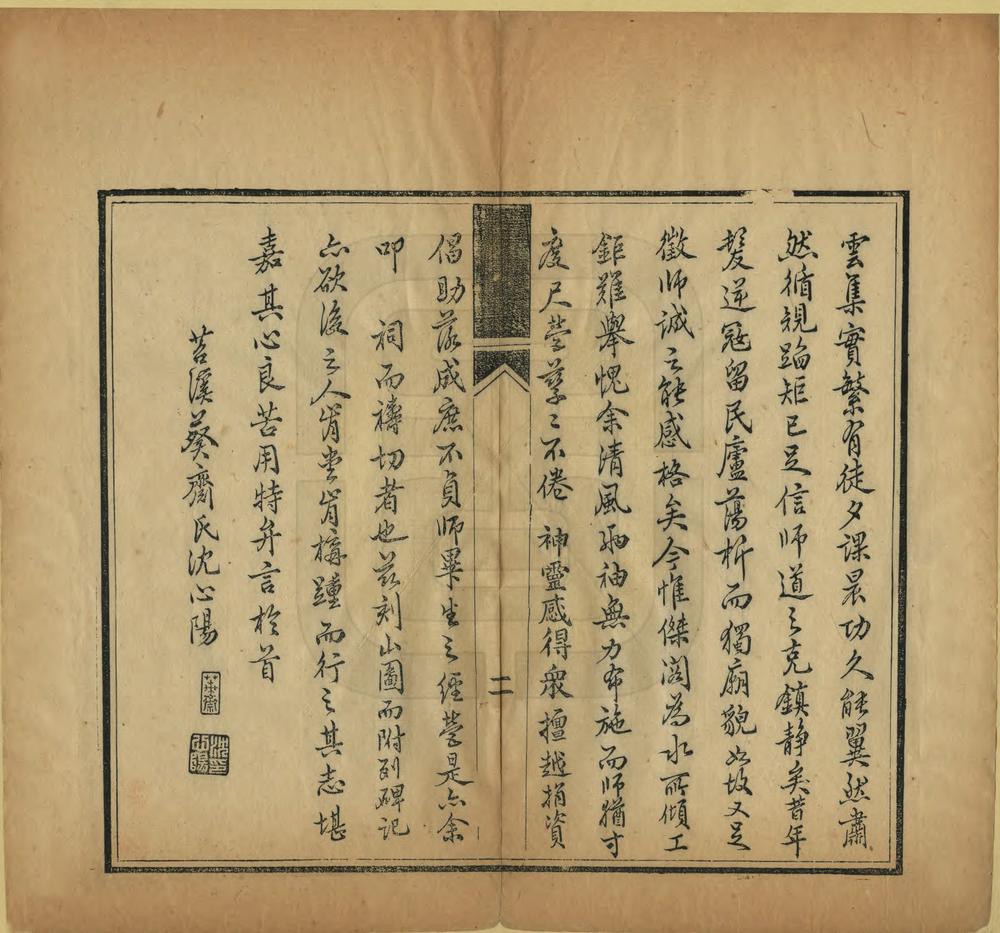 雲集實繁有徒夕課晨功久能翼然肅
然循規蹈矩已足信師道之克鎮静矣昔年
髮逆寇留民廬蕩析而獨廟貌如故又足
徵師誠之能感格矣今惟傑閣為水所傾工
鉅難舉愧余清風兩袖無力布施而師猶寸
度尺營孳〻不倦 神靈感得衆擅越捐資
倡助落成庶不負師畢生之經營是亦余
叩 祠而禱切者也茲刻山圖而附列碑記
亦欲後之人肯堂肯構踵而行之其志堪
嘉其心良苦用特弁言於首
苕溪葵齋氏沈心陽
二